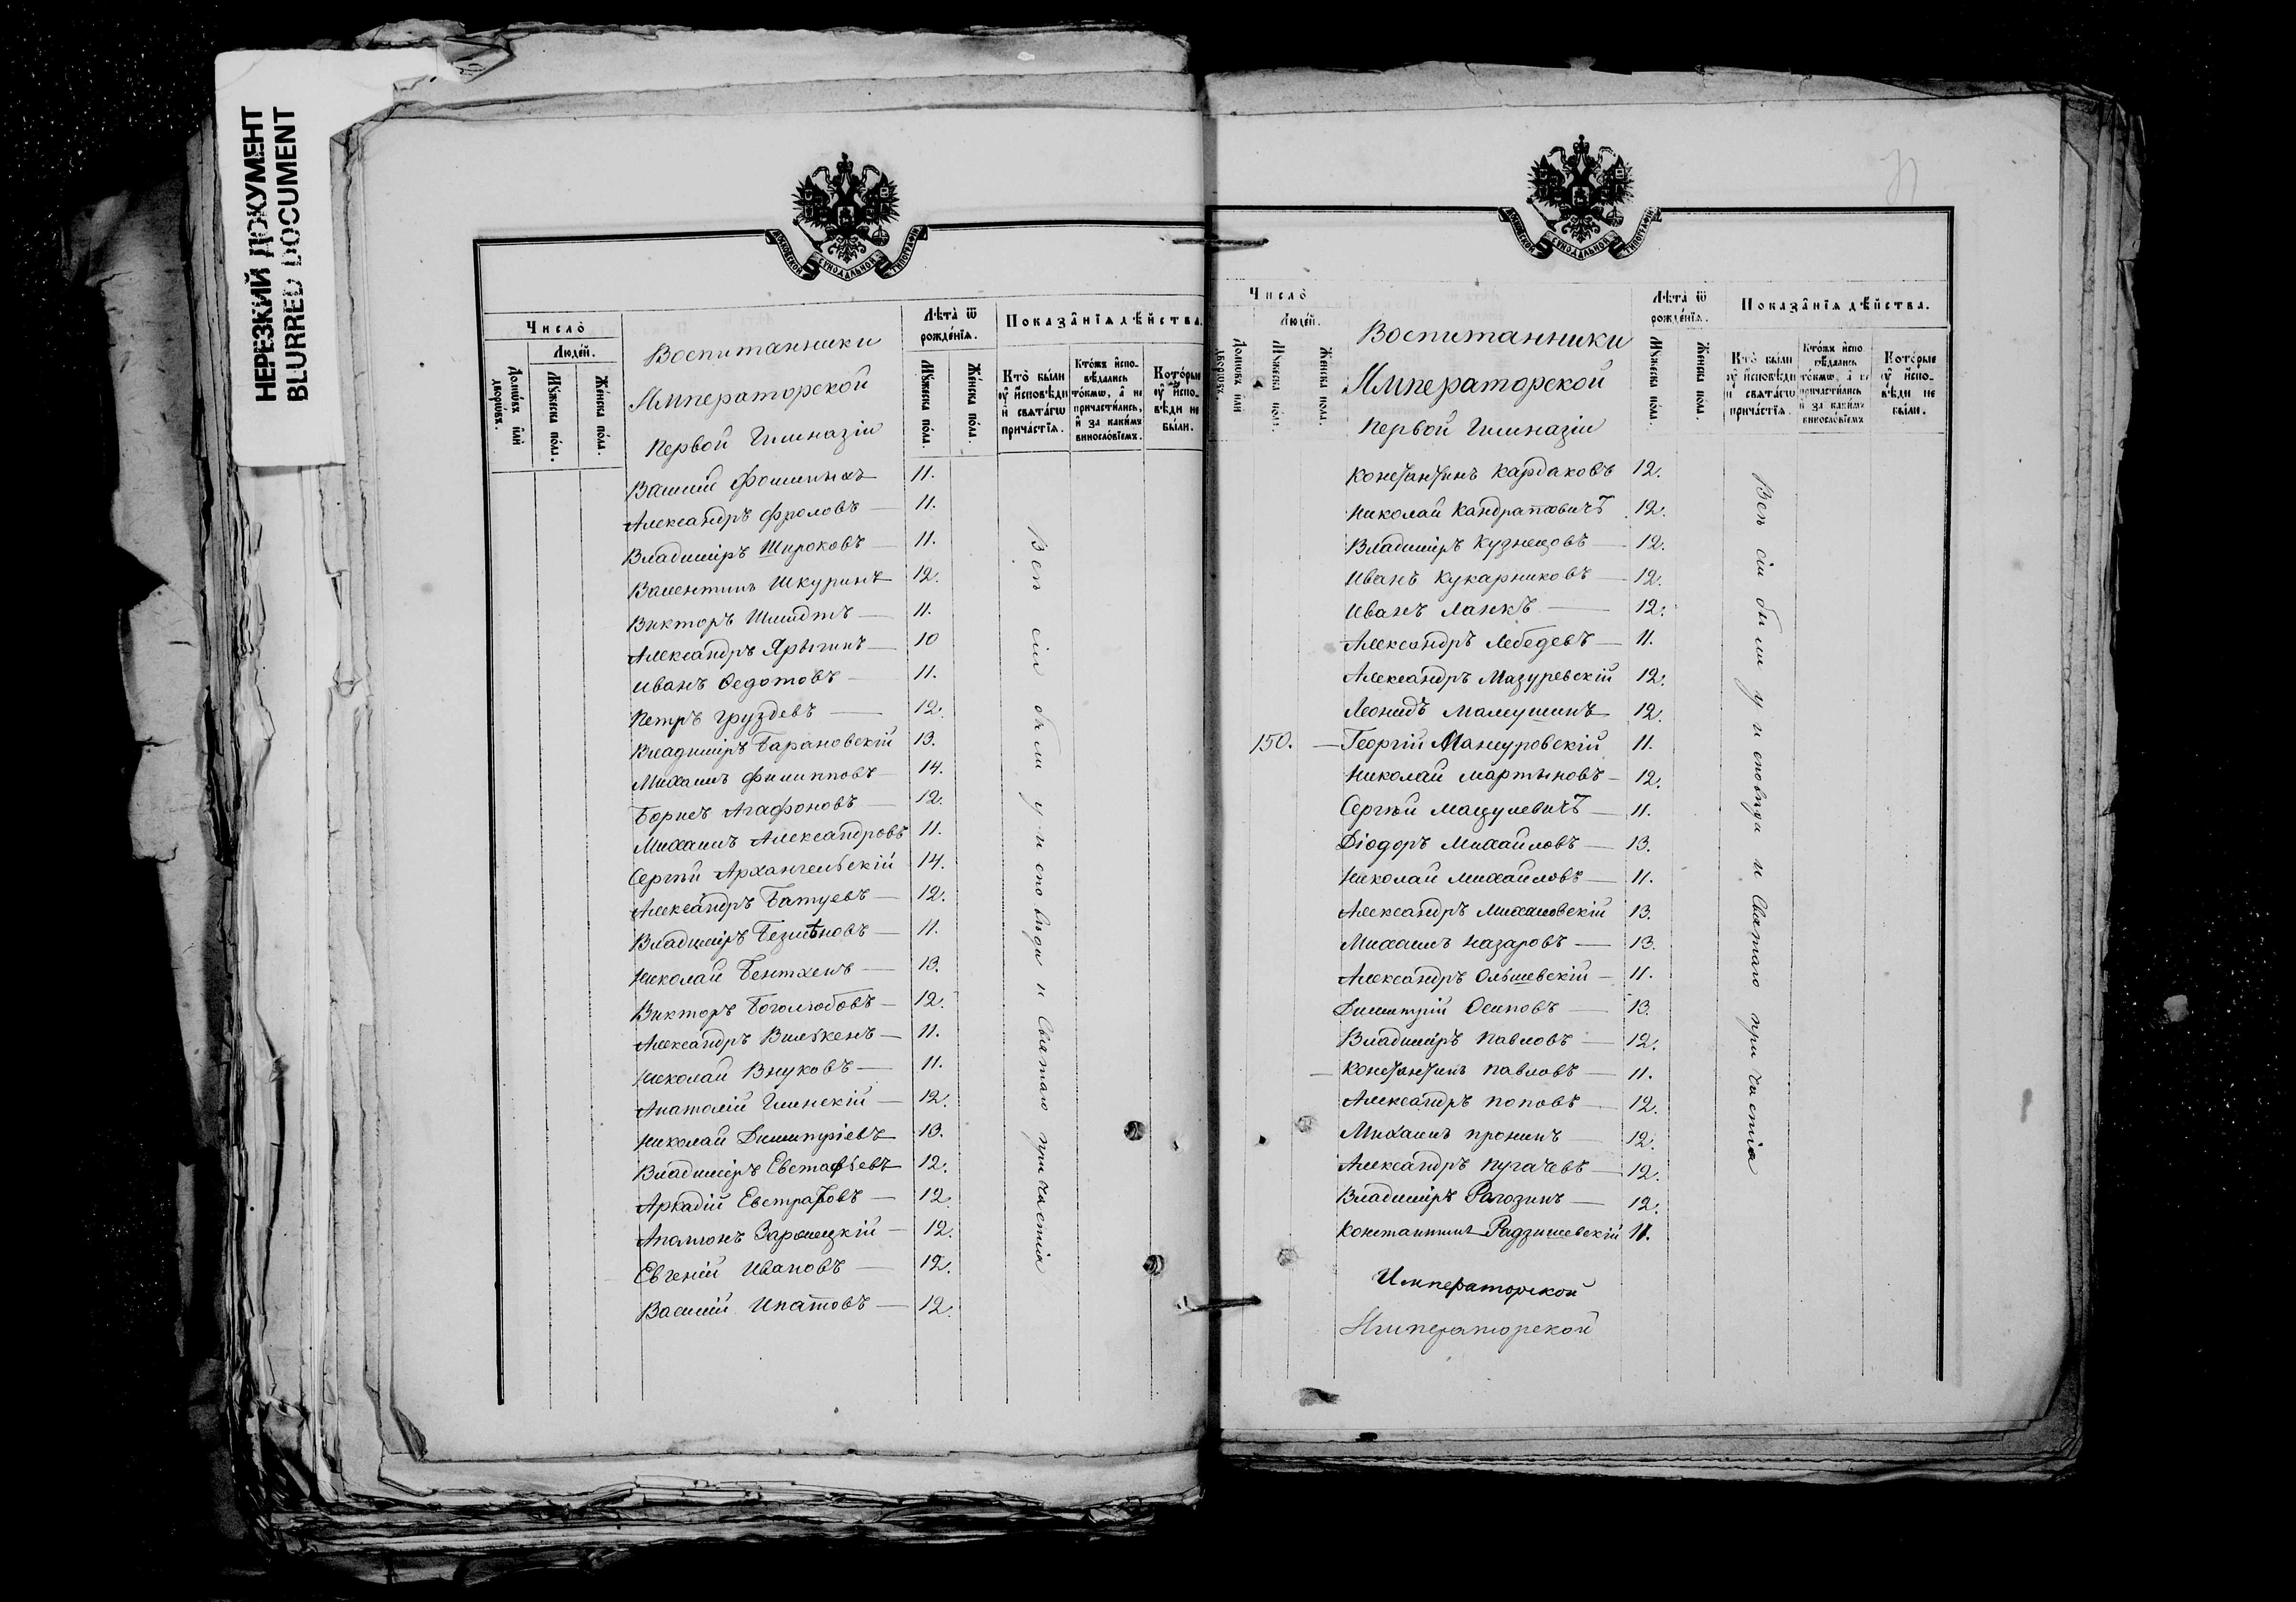 НЕРЕЗКИЙ ДОКУМЕНТ
BLURRED DOCUMENT
МОСКОВСКОЙ СѴНОДАЛЬНОЙ ТИПОГРАФІИ
Число̀
Людей.
Домѡвъ и҆лѝ дворѡвъ.
Мꙋжеска по́ла.
Же́нска по́ла.
Воспитанники
Императорской
Первой Гимназіи
Лѣта̀ ѿ рожде́нїѧ.
Мꙋжеска по́ла.
Же́нска по́ла.
Показа̂нїѧ дѣ́йства.
Кто̀ бы́ли ᲂу҆ и҆сповѣди и҆ свѧта́гѡ прича́стїѧ.
Кто́жъ и҆сповѣ́дались то́кмѡ, а҆ не причасти́лись, и҆ за каки́мъ винослѡ́вїемъ.
Кото́рые ᲂу҆ и҆сповѣди не бы́ли.
Василій Фоминыхъ 11.
Александръ Фроловъ — 11.
Владиміръ Широковъ — 11.
Валентинъ Шкуринъ 12.
Викторъ Шмидтъ — 11.
Александръ Ярыгинъ — 10
Иванъ Ѳедотовъ — 11.
Петръ Груздевъ — 12.
Владиміръ Барановскій 13.
Михаилъ Филипповъ — 14.
Борисъ Агафоновъ — 12.
Михаилъ Александровъ 11.
Сергѣй Архангельскій 14.
Александръ Батуевъ — 12.
Владиміръ Безмѣновъ — 11.
Николай Бентхенъ — 13.
Викторъ Боголюбовъ — 12.
Александръ Вилькенъ — 11.
Николай Внуковъ — 11.
Анатолій Глинскій — 12.
Николай Димитріевъ 13.
Владиміръ Евстафьевъ 12.
Аркадій Евстратовъ — 12.
Аполлонъ 12.
Евгеній Ивановъ — 12.
Василій Ипатовъ — 12.
Всѣ сіи были у исповѣди и Святаго причастія
Число̀
Людей.
Домѡвъ и҆лѝ дворѡвъ.
Мꙋжеска по́ла.
Же́нска по́ла.
Воспитанники
Императорской
Первой Гимназіи
Лѣта̀ ѿ рожде́нїѧ.
Мꙋжеска по́ла.
Же́нска по́ла.
Показа̂нїѧ дѣ́йства.
Кто̀ бы́ли ᲂу҆ и҆сповѣди и҆ свѧта́гѡ прича́стїѧ.
Кто́жъ и҆сповѣ́дались то́кмѡ, а҆ не причасти́лись и҆ за каки́мъ винослѡ́вїемъ
Кото́рые ᲂу҆ и҆сповѣди не бы́ли.
Константинъ Кардаковъ 12.
Николай Кандратовичъ 12.
Владиміръ Кузнецовъ — 12.
Иванъ Кукарниковъ — 12.
Иванъ Ланкъ — 12.
Александръ Лебедевъ — 11.
Александръ Мазуревскій 12.
Леонидъ Мамушинъ 12.
150. — Георгій Манцуровскій 11.
Николай Мартыновъ — 12.
Сергѣй Мацулевичъ — 11.
Діодоръ Михайловъ — 13.
Николай Михайловъ — 11.
Александръ Михаловскій 13.
Михаилъ Назаровъ — 13.
Александръ Ольшевскій — 11.
Димитрій Осиповъ — 13.
Владиміръ Павловъ — 12.
— Константинъ Павловъ — 11.
Александръ Поповъ — 12.
Михаилъ Пронинъ — 12.
Александръ Пугачевъ — 12.
Владиміръ Рагозинъ — 12.
Константинъ Радзишевскій 11.
Императорской
Императорской
Всѣ сіи были у исповѣди и Святаго причастія
МОСКОВСКОЙ СѴНОДАЛЬНОЙ ТИПОГРАФІИ